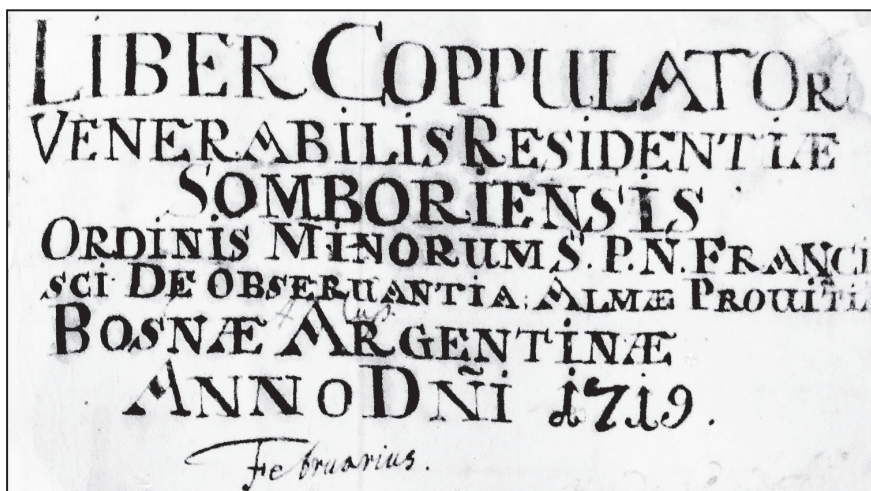 LIBER COPPULATOR
VENERABILIS RESIDENTIÆ
SOMBORIENSIS
ORDINIS MINORUM S. P. N. FRANCI
SCI DE OBSERUANTIA: ALMÆ PROUIÑTI
BOSNÆ ARGENTINÆ
ANNO DÑI 1719.
Februarius.